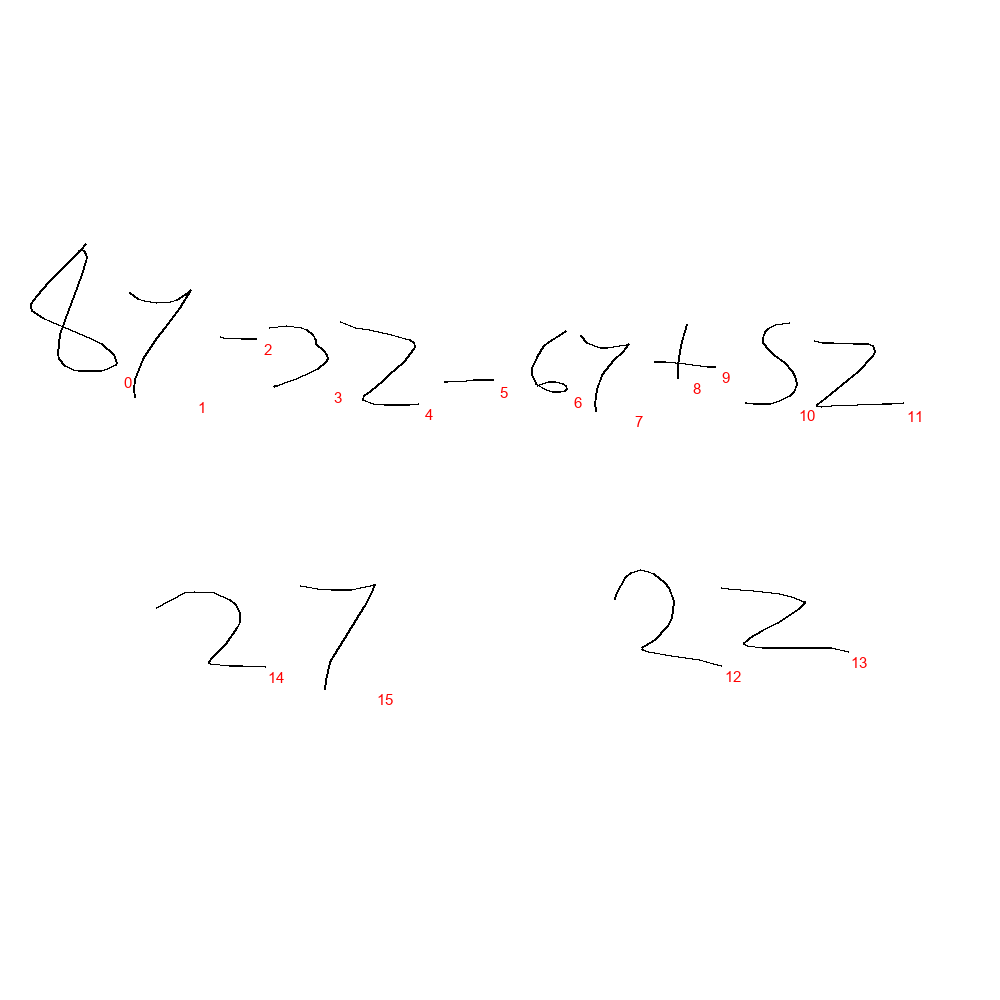 8y - 3z - 6y + 5z
0 1 2 3 4 5 6 7 8 9 10 11
2y 2z
14 15 12 13